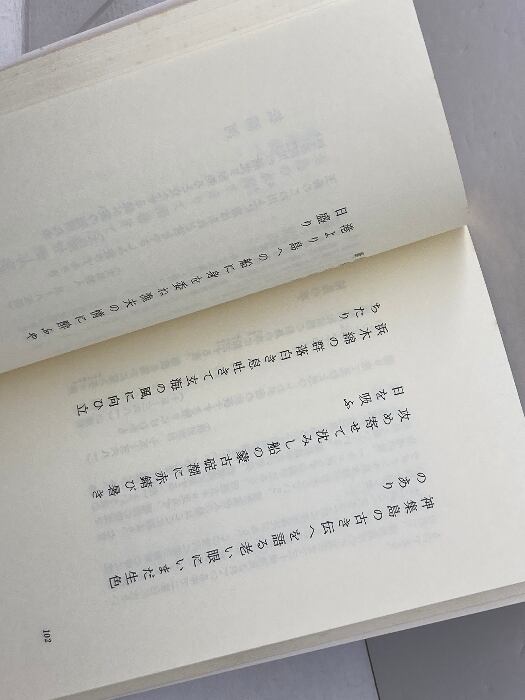 神集島の古き伝へを語る老い眼にいまだ生色
のあり
攻め寄せて沈みし船の蒙古碇潮に赤錆び暑き
日を吸ふ
浜木綿の群落白き息吐きて玄海の風に向ひ立
ちたり
港より島への船に身を委ね漁夫の情に酔ふや
日盛り
102